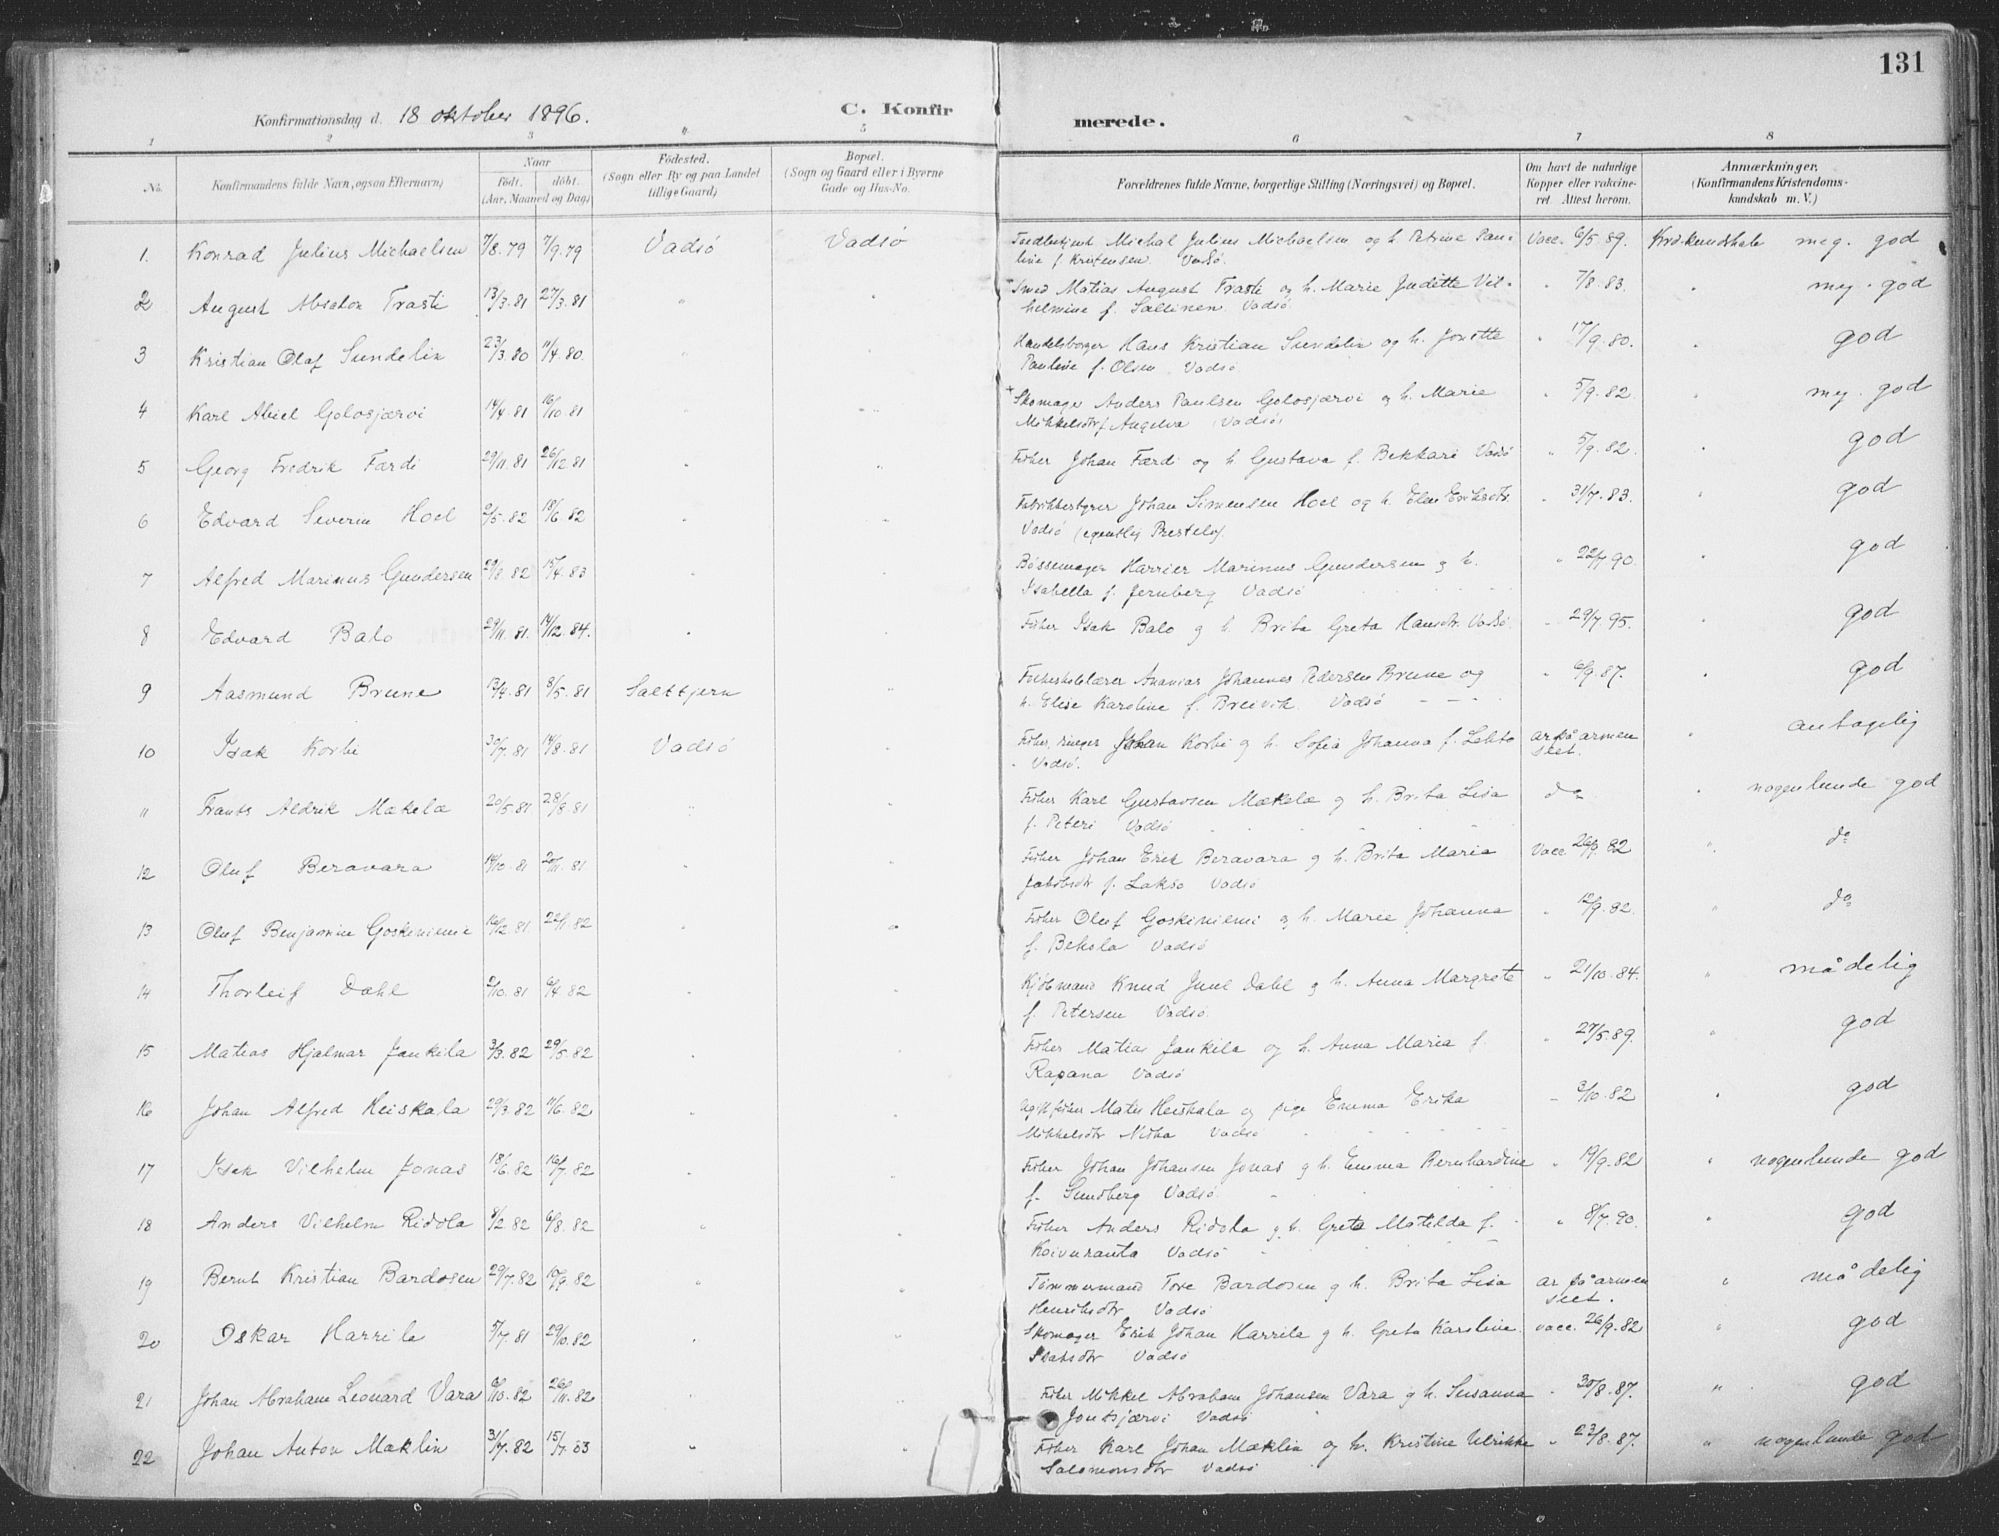 131
Konfirmationsdag d. 18 oktober 1896.
C. Konfirmerede.
1 2 3 4 5 6 7 8
No. Konfirmandens fulde Navn, ogsaa Efternavn) Naar født. døbt. (Aar, Maaned og Dag) Fødested. (Sogn eller By og paa Landet tillige Gaard) Bopæl. (Sogn og Gaard eller i Byerne Gade og Hus-No. Forældrenes fulde Navne, borgerlige Stilling (Næringsvei) og Bopæl. Om havt de naturlige Kopper eller vakcineret. Attest herom. Anmærkninger. (Konfirmandens Kristendomskundskab m. V.)
1. Konrad Julius Michaelsen 7/8.79 7/9.79 Vadsø Vadsø Michal Julius Michaelsen og h. Petrine Pauline f. Kristensen Vadsø. Vacc. 6/5.89. meg. god
2 August Abiator Trasti 13/3.81 27/3.81 " " Smed Matias August Trasti og h. Marie Juditte Vilhelmine f. Sallinen Vadsø " 7/8.83. " meg. god
3 Kristian Olaf Sundelin 23/3.80 11/4.80. " " Handelsborger Hans Kristian Sundelin og h. Jonette Pauline f. Olsen Vadsø " 17/9.80. " god
4 Karl Abiel Golosjærvi 14/4.81 16/10.81 " " Skomager Anders Paulsen Golosjærvi og h. Marie Mikkelsdtr f. Angelva Vadsø " 5/9.82. " meg. god
5 Georg Fredrik Færdi 29/11.81 26/12.81 " " Fisker Johan Færdi og h. Gustava f. Bekkari Vadsø " 5/9.82. " god
6 Edvard Severin Hoel 2/5.82 18/6.82 " " Fabrikbestyrer Johan Simensen Hoel og h. Elen Eriksdtr Vadsø (egentlig Prestelv). " 31/7.83. " god
7 Alfred Marinus Gundersen 29/8.82 15/4.83 " " Bøssemager Harrier Marinus Gundersen og h. Isabella f. Jernberg Vadsø " 22/7.90. " god
8 Edvard Balo 29/11.81. 14/12.84. " " Fisker Isak Balo og h. Brita Greta Hansdtr. Vadsø. " 29/7.95. god
9 Aasmund Brune 13/4.81 8/5.81 Salttjern " Folkeskolelærer Ananias Johannes Pedersen Brune og h. Elise Karoline f. Breivik. Vadsø " 6/9.87. " god
10 Isak Korbi 30/7.81 14/8.81 Vadsø " Fisker, Johan Korbi og h. Sofia Johanna f. Lehto Vadsø. ar på armen seet. " antagelig
11 Frants Aldrik Mækelæ 20/5.81. 28/8.81 " " Fisker Karl Gustavsen Mækelæ og h. Brita Lisa f. Peteri Vadsø do " nogenlunde god
12 Oluf Beravara 14/10.81 20/11.81 " " Fisker Johan Erik Beravara og h. Brita Maria Jakobsdtr f. Lakso Vadsø Vacc. 26/9.82 " do
13 Oluf Benjamin Goskiniemi 16/12.81. 22/1.82 " " Fisker Oluf Goskiniemi og h. Marie Johanna f. Bekola Vadsø " 12/9.82. " do
14 Thorleif Dahl 2/10.81 6/4.82 " " Kjøbmand Knud Juul Dahl og h. Anna Margrete f. Petersen Vadsø. " 21/10.84. " mådelig
15 Matias Hjalmar Jankila 3/3.82 29/5.82 " " Fisker Matias Jankila og h. Anna Maria f. Rapana Vadsø " 27/5.89. " god
16 Johan Alfred Heiskala 29/3.82 11/6.82 " " Ugift fisker Mats Heiskala og pige Emma Erika Mikkelsdtr Niska Vadsø " 3/10.82 " god
17 Isak Vilhelm Jonas 18/6.82 16/7.82 " " Fisker Johan Johansen Jonas og h. Emma Bernhardine f. Sundberg Vadsø " 19/9.82 " nogenlunde god
18 Anders Vilhelm Ridola 8/2.82 6/8.82 " " Fisker Anders Ridola og h. Greta Matilda f. Koivuranta Vadsø " 8/7.90. " god
19 Bernt Kristian Bardosen 29/7.82 10/9.82 " " Tømmermand Tore Bardosen og h. Brita Lisa Henriksdtr Vadsø ar på armen seet. " mådelig
20 Oskar Harrila 5/7.81 29/10.82 " " Skomager Erik Johan Harrila og h. Greta Karoline Isaksdtr Vadsø vacc. 26/9.82 " god
21 Johan Abraham Leonard Vara 9/10.82 26/11.82 " " Fisker Mikkel Abraham Johansen Vara og h. Susanna Jontsjærvi Vadsø " 30/8.87. " god
22 Johan Anton Mæklin 31/7.82 15/7.83 " " Fisker Karl Johan Mæklin og h. Kristine Ulrikke Salomonsdtr Vadsø " 23/8.87. " nogenlunde god